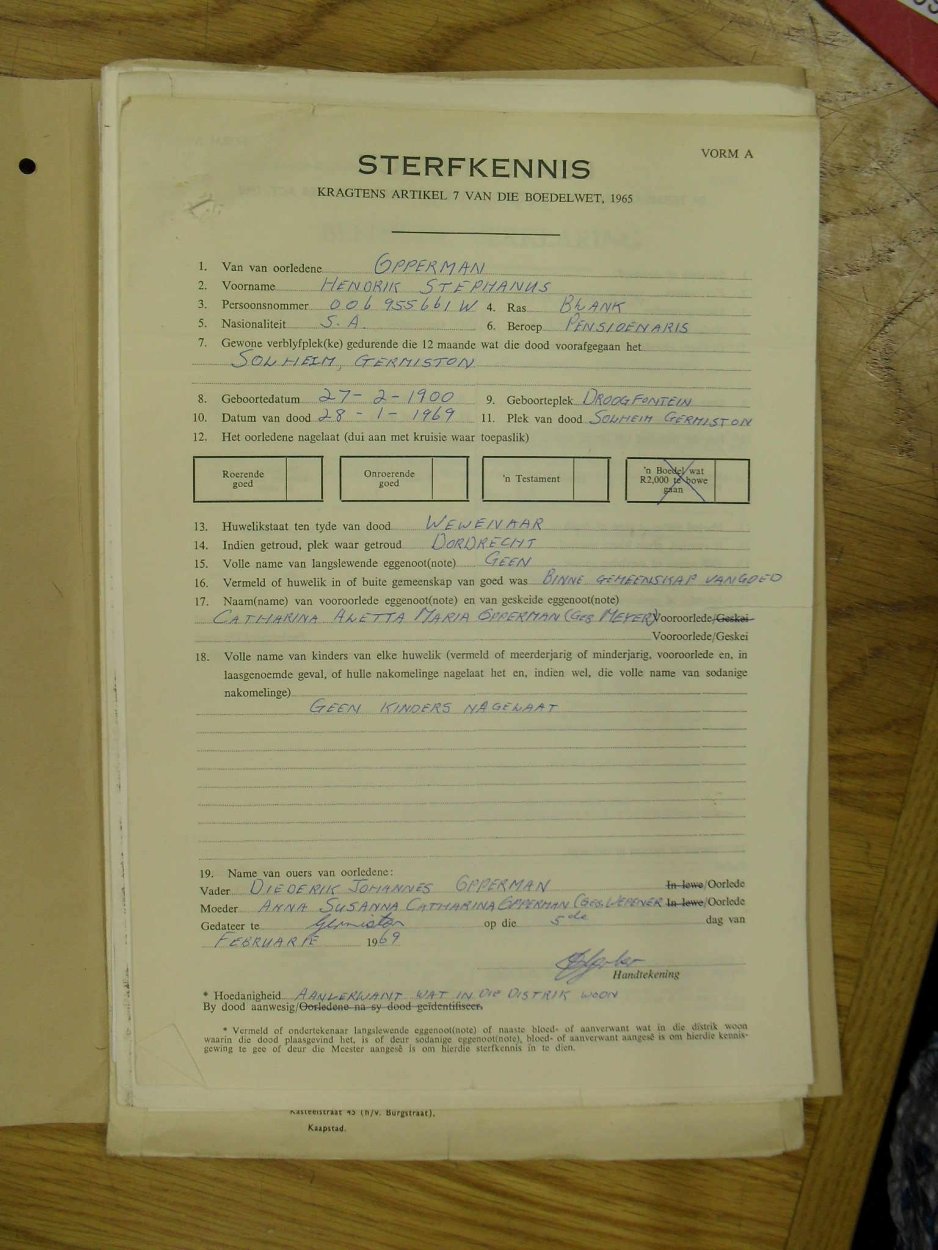 VORM A
STERFKENNIS
KRAGTENS ARTIKEL 7 VAN DIE BOEDELWET, 1965
1. Van van oorledene OPPERMAN
2. Voorname HENDRIK STEPHANUS
3. Persoonsnommer 006 955661 W 4. Ras BLANK
5. Nasionaliteit S.A. 6. Beroep PENSIOENARIS
7. Gewone verblyfplek(ke) gedurende die 12 maande wat die dood voorafgegaan het
SOLHEIM, GERMISTON
8. Geboortedatum 27-2-1900 9. Geboorteplek DROOGFONTEIN
10. Datum van dood 28-1-1969 11. Plek van dood SOLHEIM GERMISTON
12. Het oorledene nagelaat (dui aan met kruisie waar toepaslik)
Roerende goed Onroerende goed 'n Testament 'n Boedel wat R2,000 te bowe gaan
13. Huwelikstaat ten tyde van dood WEWENAAR
14. Indien getroud, plek waar getroud DORDRECHT
15. Volle name van langslewende eggenoot(note) GEEN
16. Vermeld of huwelik in of buite gemeenskap van goed was BINNE GEMEENSKAP VAN GOED
17. Naam(name) van vooroorlede eggenoot(note) en van geskeide eggenoot(note)
CATHARINA ALETTA MARIA OPPERMAN (GEB MEYER) Vooroorlede/Geskei
Vooroorlede/Geskei
18. Volle name van kinders van elke huwelik (vermeld of meerderjarig of minderjarig, vooroorlede en, in
laasgenoemde geval, of hulle nakomelinge nagelaat het en, indien wel, die volle name van sodanige
nakomelinge)
GEEN KINDERS NAGELAAT
19. Name van ouers van oorledene:
Vader DIEDERIK JOHANNES OPPERMAN In lewe/Oorlede
Moeder ANNA SUSANNA CATHARINA OPPERMAN (GEB. WEPENER In lewe/Oorlede
Gedateer te Germiston op die 5de dag van
FEBRUARIE 1969
Handtekening
* Hoedanigheid AANVERWANT WAT IN DIE DISTRIK WOON
By dood aanwesig/Oorledene na sy dood geïdentifiseer.
* Vermeld of ondertekenaar langslewende eggenoot(note) of naaste bloed- of aanverwant wat in die distrik woon
waarin die dood plaasgevind het, is of deur sodanige eggenoot(note), bloed- of aanverwant aangesê is om hierdie kennis-
gewing te gee of deur die Meester aangesê is om hierdie sterfkennis in te dien.
Kasteelstraat 45 (h/v. Burgstraat),
Kaapstad.